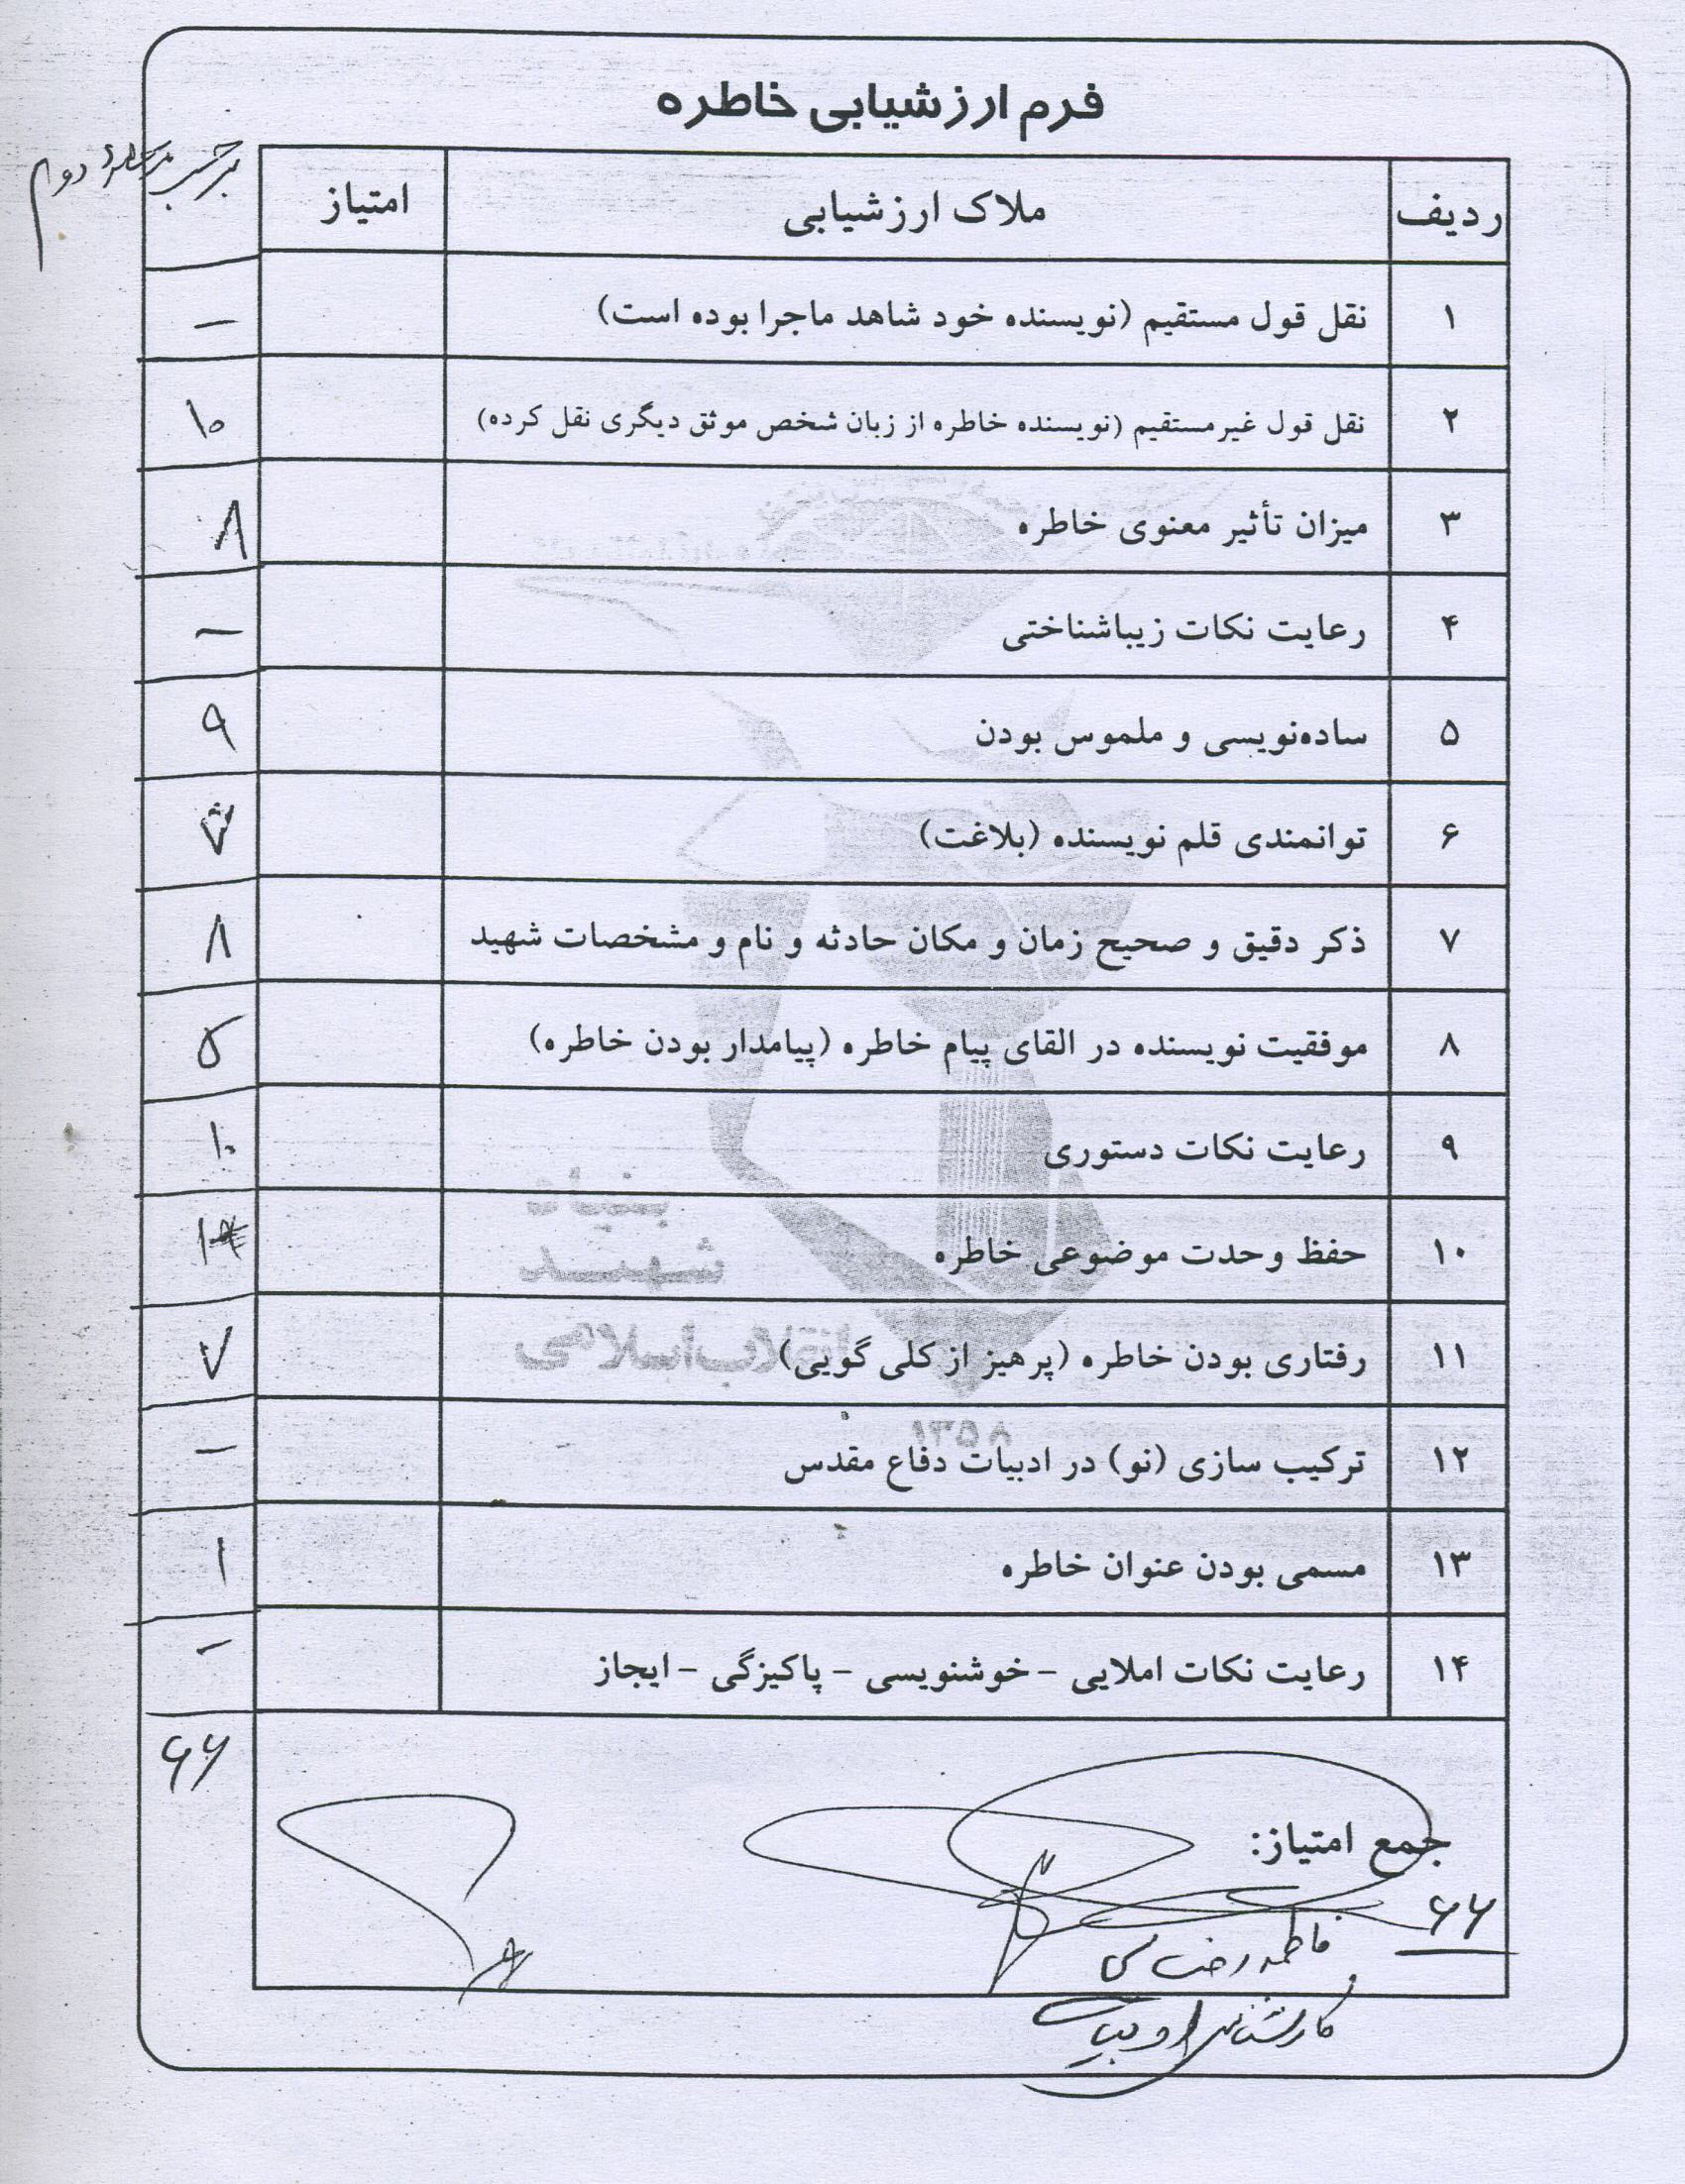 فرم ارزشیابی خاطره
ردیف ملاک ارزشیابی امتیاز برحسب دوم
۱ نقل قول مستقیم (نویسنده خود شاهد ماجرا بوده است) –
۲ نقل قول غیرمستقیم (نویسنده خاطره از زبان شخص موثق دیگری نقل کرده) ۱۰
۳ میزان تأثیر معنوی خاطره ۸
۴ رعایت نکات زیباشناختی –
۵ ساده‌نویسی و ملموس بودن ۹
۶ توانمندی قلم نویسنده (بلاغت)
۷ ذکر دقیق و صحیح زمان و مکان حادثه و نام و مشخصات شهید ۸
۸ موفقیت نویسنده در القای پیام خاطره (پیامدار بودن خاطره) ۵
۹ رعایت نکات دستوری ۱۰
۱۰ حفظ وحدت موضوعی خاطره
۱۱ رفتاری بودن خاطره (پرهیز از کلی گویی) ۷
۱۲ ترکیب سازی (نو) در ادبیات دفاع مقدس –
۱۳ مسمی بودن عنوان خاطره ۱
۱۴ رعایت نکات املایی – خوشنویسی – پاکیزگی – ایجاز –
۶۶
جمع امتیاز:
۶۶
فاطمه
کارشناس ادبیات
بنیاد
شهید
انقلاب اسلامی
۱۳۵۸